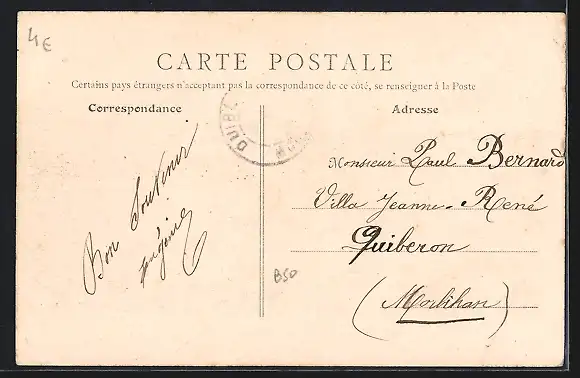 4€
CARTE POSTALE
Certains pays étrangers n'acceptant pas la correspondance de ce côté, se renseigner à la Poste
Correspondance
Adresse
QUIB
Bon Souvenir
Monsieur Paul Bernard
Villa Jeanne-René
Quiberon
(Morbihan)
B50